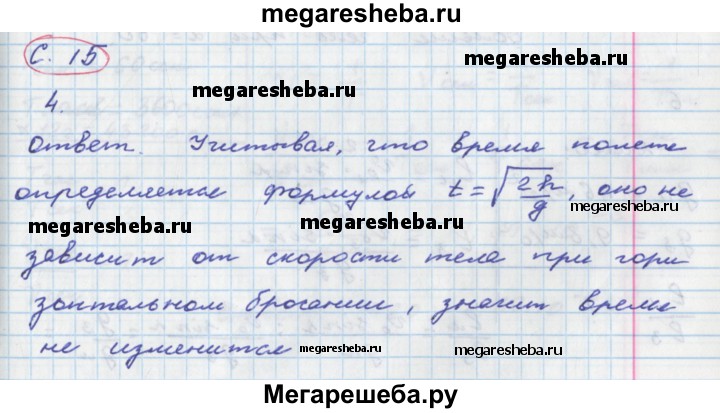 megaresheba.ru
С. 15
megaresheba.ru
4.
megaresheba.ru
Ответ. Учитывая, что время полета
определяется формулой t = √(2h/g), оно не
megaresheba.ru
megaresheba.ru
megaresheba.ru
зависит от скорости тела при гори
зонтальном бросании, значит время
не изменится
megaresheba.ru
megaresheba.ru
Мегарешеба.ру